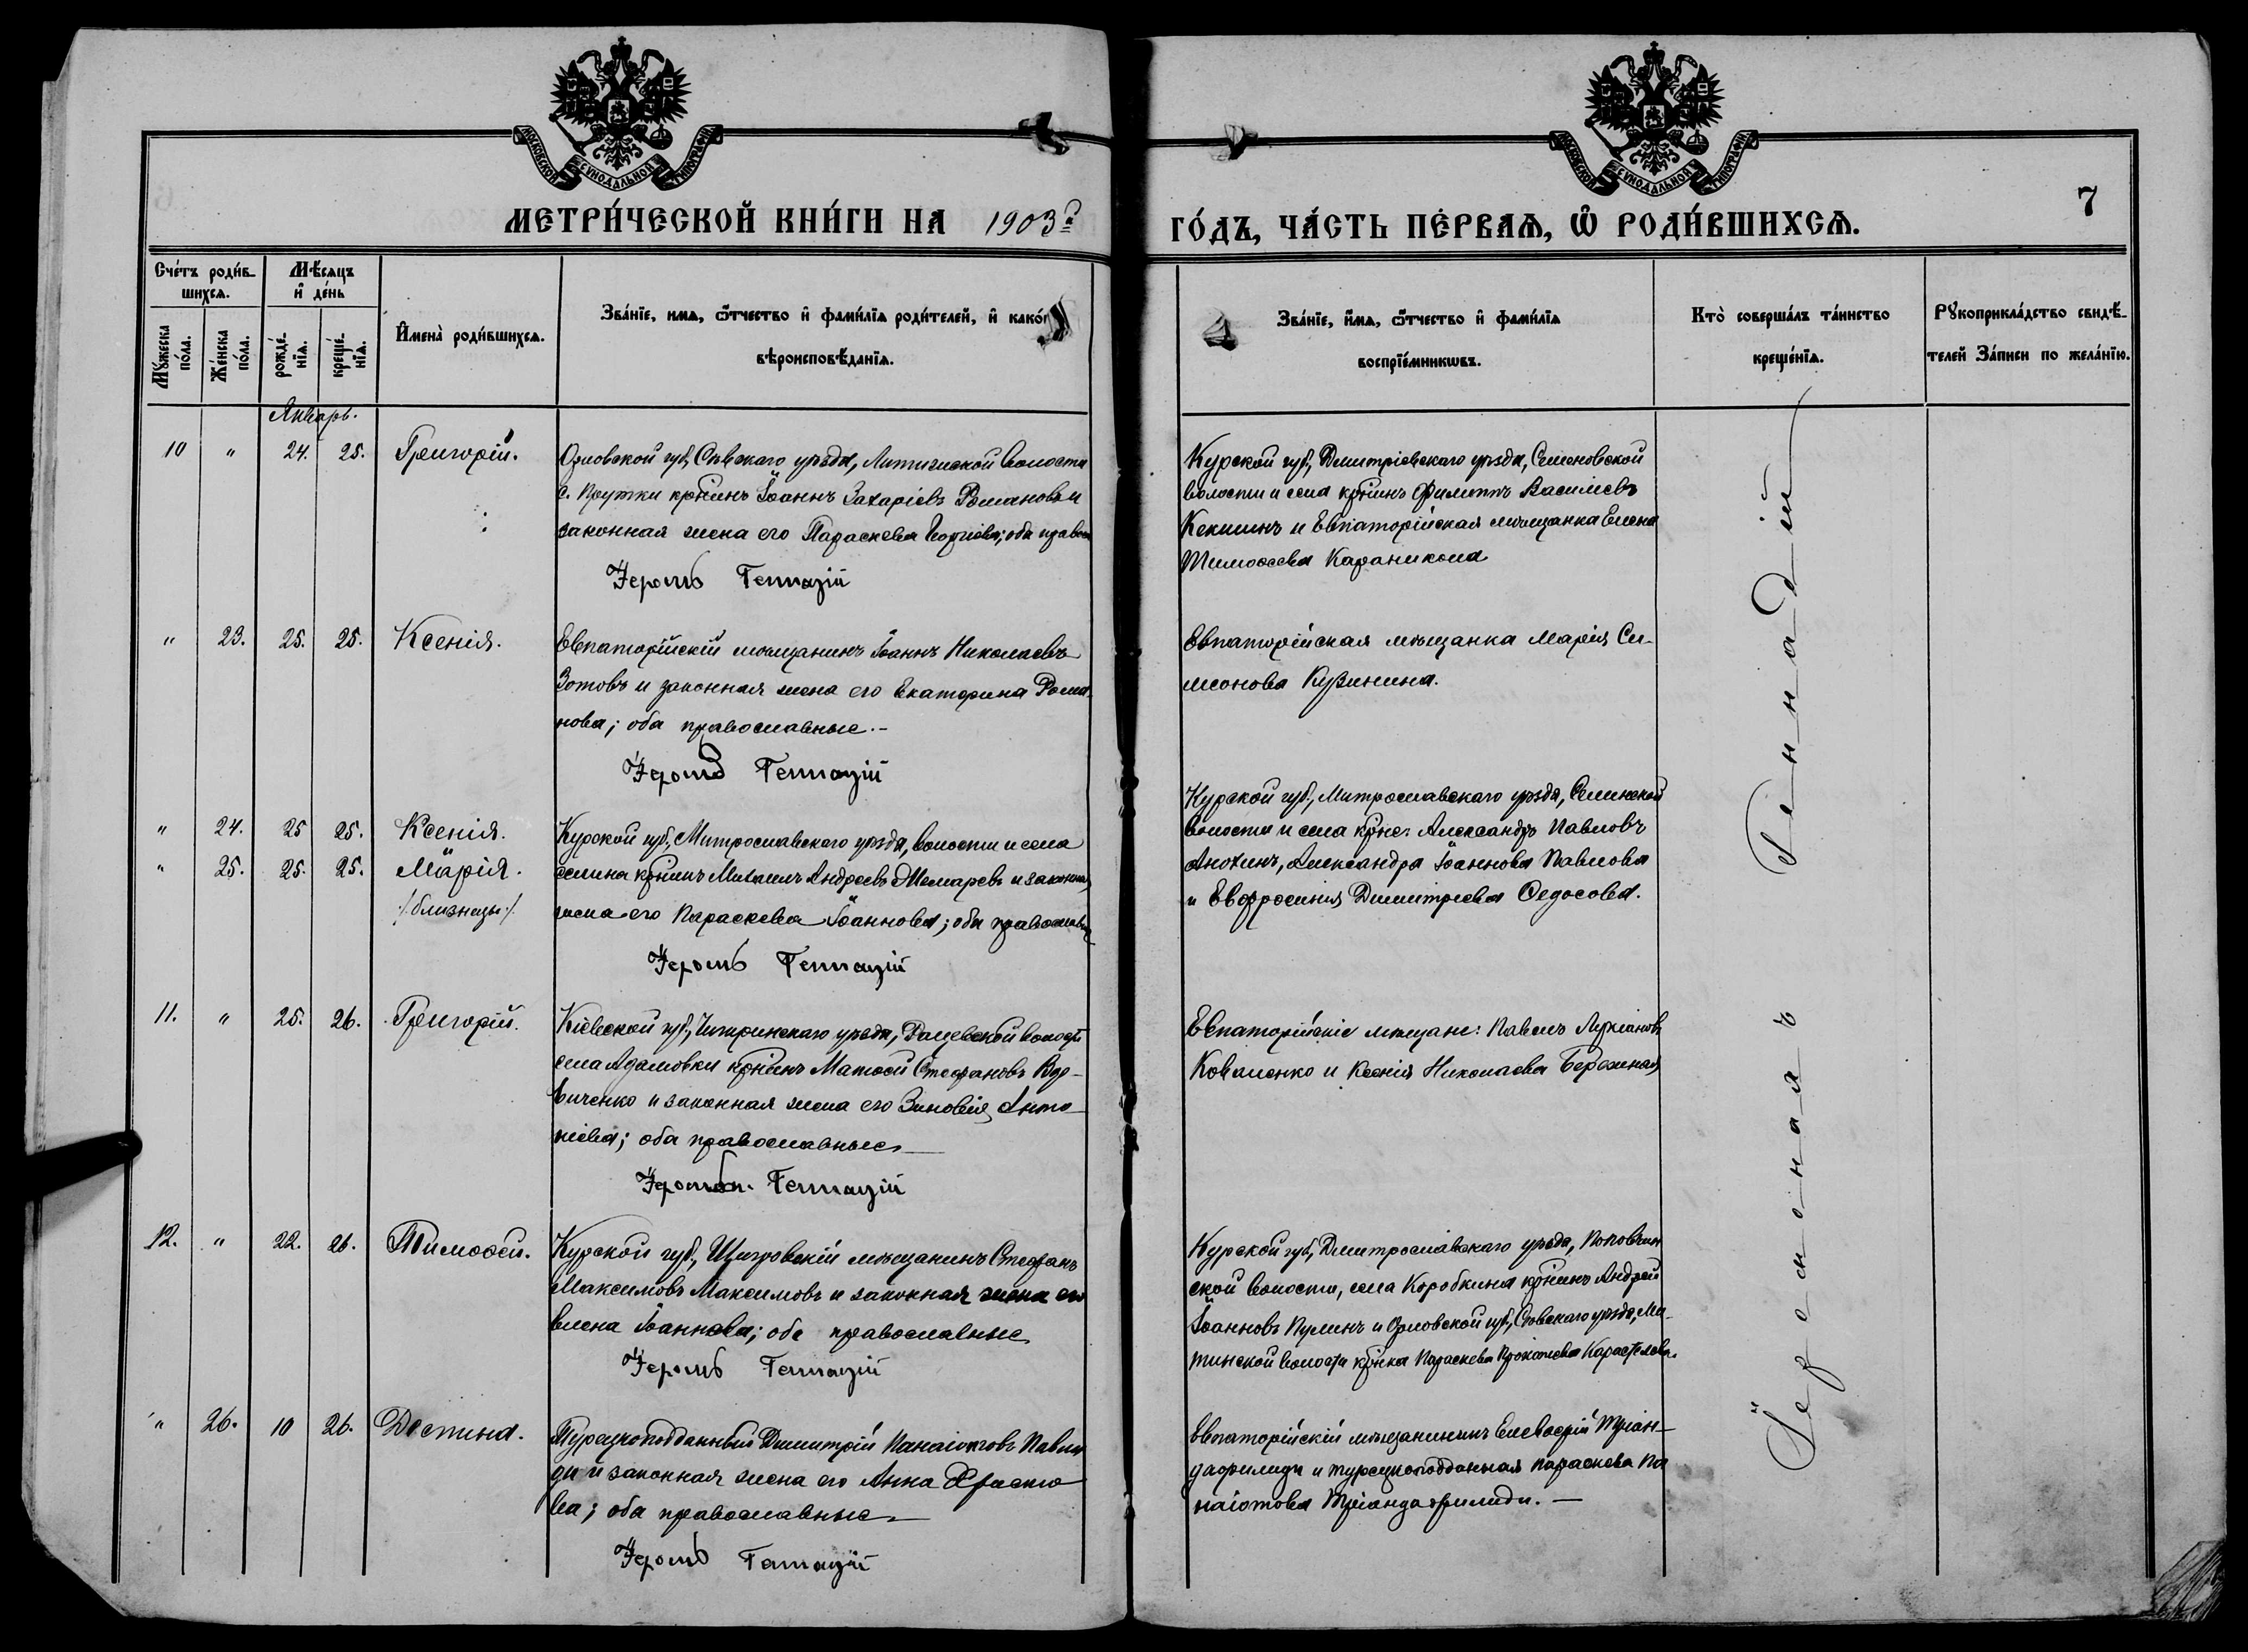 МОСКОВСКОЙ СѴНОДАЛЬНОЙ ТИПОГРАФІИ
МОСКОВСКОЙ СѴНОДАЛЬНОЙ ТИПОГРАФІИ
МЕТРИ́ЧЕСКОЙ КНИ́ГИ НА 1903 г. ГО́ДЪ, ЧА́СТЬ ПЕ́РВАѦ, Ѽ РОДИ́ВШИХСѦ.
7
Сче́тъ роди́в-
шихсѧ.
Мꙋжеска по́ла.
Же́нска по́ла.
Мѣ́сѧцъ
и҆ де́нь
рожде́-
нїѧ.
креще́-
нїѧ.
И҆мена̀ роди́вшихсѧ.
Зва́нїе, имѧ, ѻ҆́тчество и҆ фами́лїѧ роди́телей, и҆ како́г
вѣроисповѣ́данїѧ.
Зва́нїе, и҆́мѧ, ѻ҆́тчество и҆ фами́лїѧ
воспрїе́мникѡвъ.
Кто̀ соверша́лъ та́инство
креще́нїѧ.
Рꙋкоприкла́дство свидѣ́-
телей За́писи по жела́нїю.
Январь.
10 " 24. 25. Григорій.
Орловской губ, Сѣвскаго уѣзда, Литижской волости
с. Прутки крѣинъ Іоаннъ Захаріевъ Романовъ и
законная жена его Параскева Георгіева; оба правос
Іером Геннадій
Курской губ, Дмитріевскаго уѣзда, Семеновской
волости и села крѣинъ Филиппъ Васильевъ
Кекшинъ и Евпаторійская мѣщанка Елена
Тимоѳеева Караникола
" 23. 25. 25. Ксенія.
Евпаторійскій мѣщанинъ Іоаннъ Николаевъ
Зотовъ и законная жена его Екатерина Рома-
нова; оба православные.-
Іером Геннадій
Евпаторійская мѣщанка Марія Си-
меонова Кузинина.
" 24. 25 25. Ксенія.
" 25. 25. 25. Марія.
/близнецы/.
Курской губ, Митрославскаго уѣзда, волости и села
Селина крѣинъ Михаилъ Андреевъ и законная
жена его Параскева Іоаннова; оба православн
Іером Геннадій
Курской губ, Митрославскаго уѣзда, Селинской
волости и села крѣне: Александръ Павловъ
Анохинъ, Александра Іоаннова Павлова
и Евфросинія Димитріева Ѳедосова.
11. " 25. 26. Григорій.
Кіевской губ, Чигринскаго уѣзда, Рацевской волости
села Адамовки крѣинъ Матѳей Стефановъ Вдо-
виченко и законная жена его Зиновія Анто-
ніева; оба православные
Іером Геннадій
Евпаторійскіе мѣщане: Павелъ Лукіановъ
Коваленко и Ксенія Николаева Бережная
12. " 22. 26. Тимоѳей.
Курской губ, Щигровскій мѣщанинъ Стефанъ
Максимовъ Максимовъ и законная жена его
Елена Іоаннова; оба православные
Іером Геннадій
Курской губ, Дмитрославскаго уѣзда, Поповкин
ской волости, села Коробкина крѣинъ Андрей
Іоанновъ Пулинъ и Орловской губ, Сѣвскаго уѣзда, Ли-
тижской волости крѣнка Параскева
" 26. 10 26. Деспина.
Турецкоподданный Димитрій Панаіотовъ Павли
ди и законная жена его Анна
ва; оба православные.
Іером Геннадій
Евпаторійскій мѣщанинъ Елевѳерій Тріан-
дафилиди и турецкоподданная Параскева Па
наіотова Тріандафилиди.
Іеромонахъ Геннадій